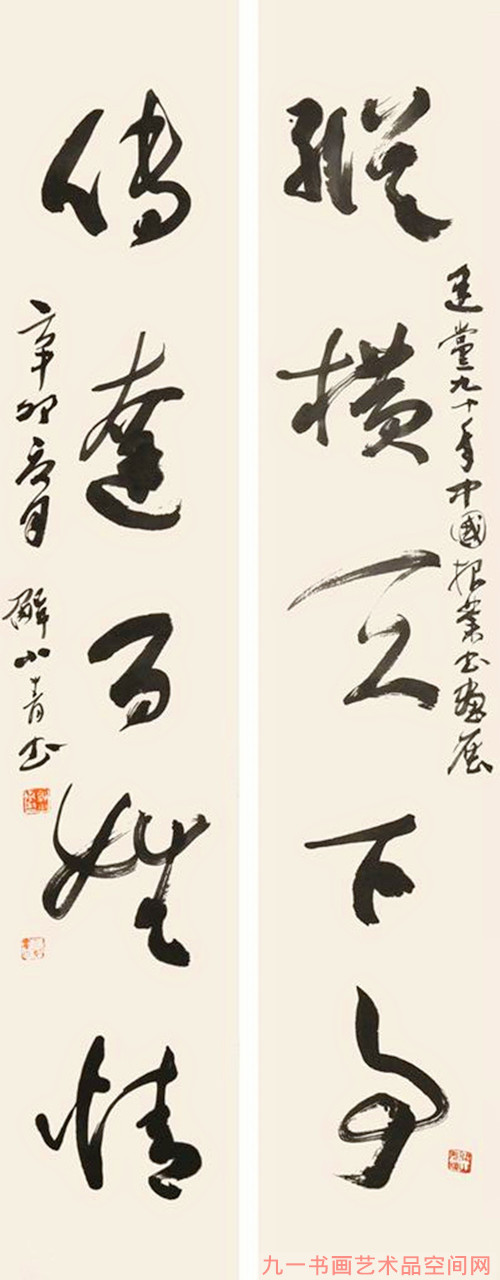 建黨九十年中國報業書畫展
縱橫天下事
傳達百姓情
辛卯夏月 解小青書
九一书画艺术品空间网